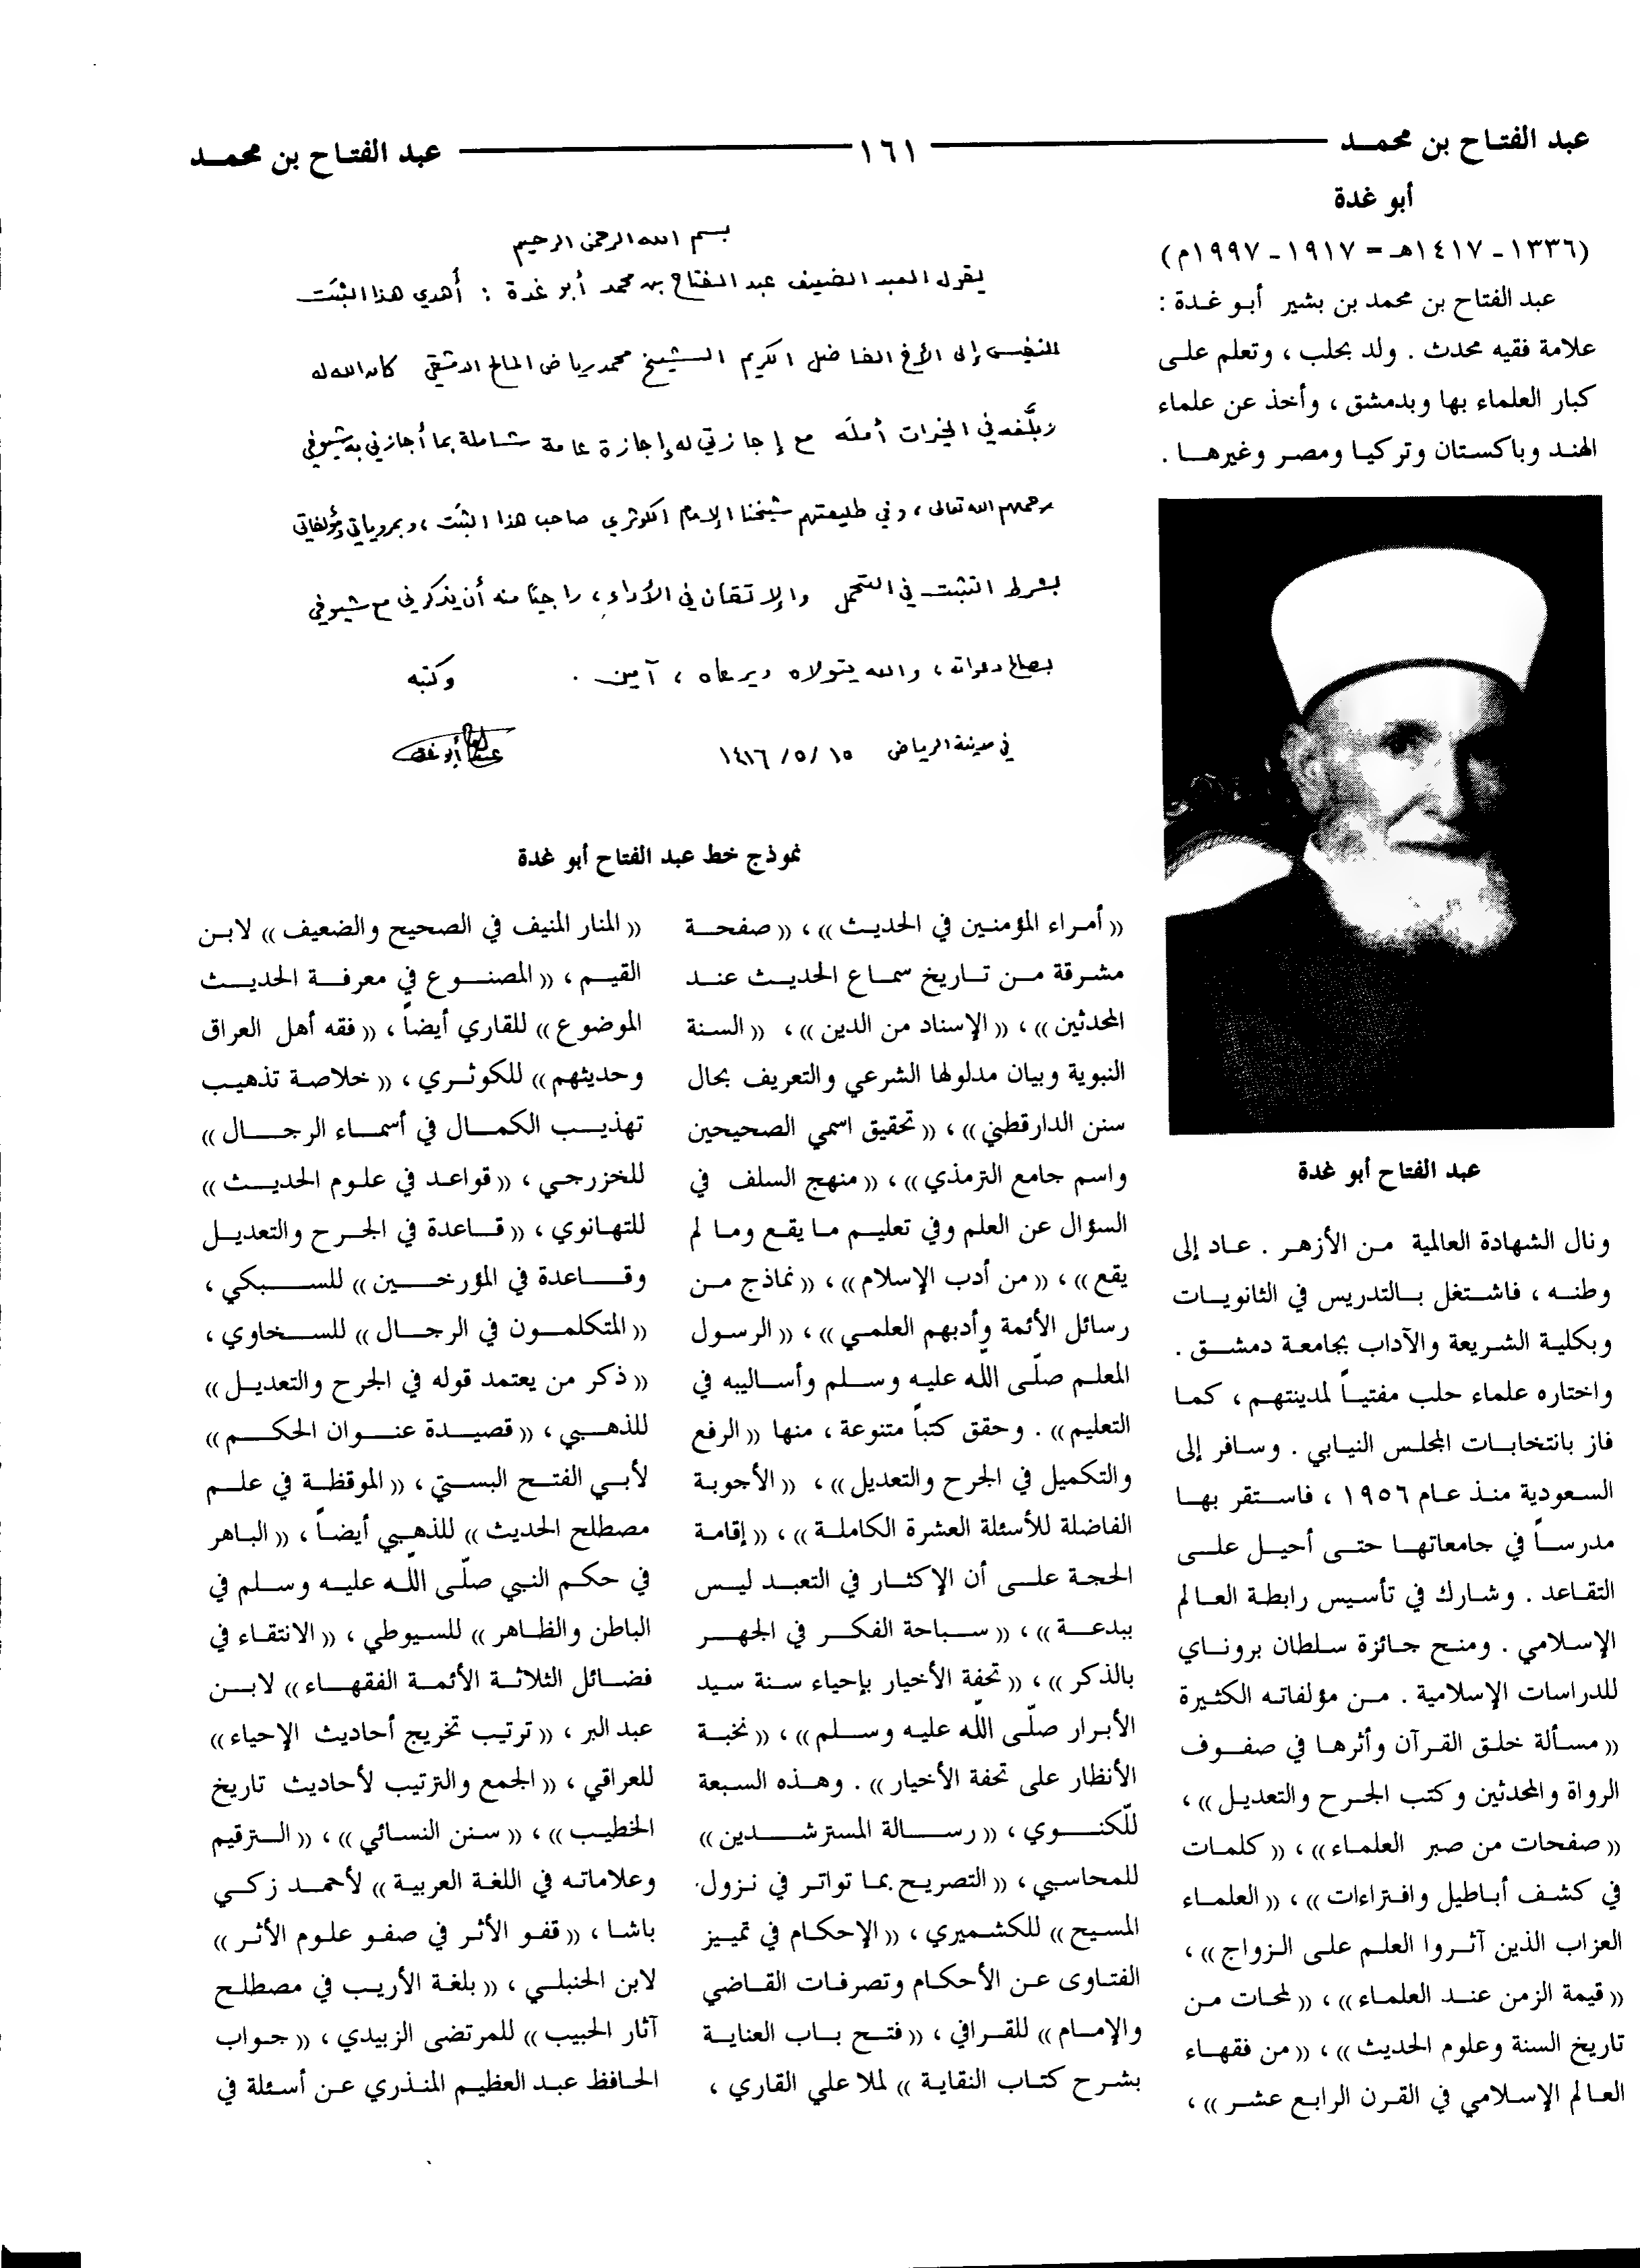 عبد الفتاح بن محمد
١٦١
عبد الفتاح بن محمد
أبو غدة
(١٣٣٦ - ١٤١٧هـ = ١٩١٧ - ١٩٩٧م)
عبد الفتاح بن محمد بن بشير أبو غدة :
علامة فقيه محدث . ولد بحلب ، وتعلم على
كبار العلماء بها وبدمشق ، وأخذ عن علماء
الهند وباكستان وتركيا ومصر وغيرها .
عبد الفتاح أبو غدة
ونال الشهادة العالمية من الأزهر . عاد إلى
وطنه ، فاشتغل بالتدريس في الثانويات
وبكلية الشريعة والآداب بجامعة دمشق .
واختاره علماء حلب مفتياً لمدينتهم ، كما
فاز بانتخابات المجلس النيابي . وسافر إلى
السعودية منذ عام ١٩٥٦ ، فاستقر بها
مدرساً في جامعاتها حتى أحيل على
التقاعد . وشارك في تأسيس رابطة العالم
الإسلامي . ومنح جائزة سلطان بروناي
للدراسات الإسلامية . من مؤلفاته الكثيرة
«مسألة خلق القرآن وأثرها في صفوف
الرواة والمحدثين وكتب الجرح والتعديل» ،
«صفحات من صبر العلماء» ، «كلمات
في كشف أباطيل وافتراءات» ، «العلماء
العزاب الذين آثروا العلم على الزواج» ،
«قيمة الزمن عند العلماء» ، «لمحات من
تاريخ السنة وعلوم الحديث» ، «من فقهاء
العالم الإسلامي في القرن الرابع عشر» ،
بسم الله الرحمن الرحيم
يقول العبد الضعيف عبد الفتاح بن محمد أبو غدة : أُهدي هذا الثبَت
النفيس إلى الأخ الفاضل الكريم الشيخ محمد رياض المالح الدمشقي كان الله له
وبلَّغه في الخيرات أملَه مع إجازتي له إجازة عامة شاملة بما أجازني به شيوخي
رحمهم الله تعالى ، وفي طليعتهم شيخنا الإمام الكوثري صاحب هذا الثبَت ، وبمروياتي ومؤلفاتي
بشرط التثبت في التحمل والإتقان في الأداء ، راجيًا منه أن يذكرني مع شيوخي
بصالح دعواته ، والله يتولاه ويرعاه ، آمين . وكتبه
في مدينة الرياض ١٥ /٥ /١٤١٦
عبد الفتاح أبو غدة
نموذج خط عبد الفتاح أبو غدة
«أمراء المؤمنين في الحديث» ، «صفحة
مشرقة من تاريخ سماع الحديث عند
المحدثين» ، «الإسناد من الدين» ، «السنة
النبوية وبيان مدلولها الشرعي والتعريف بحال
سنن الدارقطني» ، «تحقيق اسمي الصحيحين
واسم جامع الترمذي» ، «منهج السلف في
السؤال عن العلم وفي تعليم ما يقع وما لم
يقع» ، «من أدب الإسلام» ، «نماذج من
رسائل الأئمة وأدبهم العلمي» ، «الرسول
المعلم صلّى اللّه عليه وسلم وأساليبه في
التعليم» . وحقق كتباً متنوعة ، منها «الرفع
والتكميل في الجرح والتعديل» ، «الأجوبة
الفاضلة للأسئلة العشرة الكاملة» ، «إقامة
الحجة على أن الإكثار في التعبد ليس
ببدعة» ، «سباحة الفكر في الجهر
بالذكر» ، «تحفة الأخيار بإحياء سنة سيد
الأبرار صلّى اللّه عليه وسلم» ، «نخبة
الأنظار على تحفة الأخيار» . وهذه السبعة
للّكنوي ، «رسالة المسترشدين»
للمحاسبي ، «التصريح بما تواتر في نزول
المسيح» للكشميري ، «الإحكام في تمييز
الفتاوى عن الأحكام وتصرفات القاضي
والإمام» للقرافي ، «فتح باب العناية
بشرح كتاب النقاية» لملا علي القاري ،
«المنار المنيف في الصحيح والضعيف» لابن
القيم ، «المصنوع في معرفة الحديث
الموضوع» للقاري أيضاً ، «فقه أهل العراق
وحديثهم» للكوثري ، «خلاصة تذهيب
تهذيب الكمال في أسماء الرجال»
للخزرجي ، «قواعد في علوم الحديث»
للتهانوي ، «قاعدة في الجرح والتعديل
وقاعدة في المؤرخين» للسبكي ،
«المتكلمون في الرجال» للسخاوي ،
«ذكر من يعتمد قوله في الجرح والتعديل»
للذهبي ، «قصيدة عنوان الحكم»
لأبي الفتح البستي ، «الموقظة في علم
مصطلح الحديث» للذهبي أيضاً ، «الباهر
في حكم النبي صلّى اللّه عليه وسلم في
الباطن والظاهر» للسيوطي ، «الانتقاء في
فضائل الثلاثة الأئمة الفقهاء» لابن
عبد البر ، «ترتيب تخريج أحاديث الإحياء»
للعراقي ، «الجمع والترتيب لأحاديث تاريخ
الخطيب» ، «سنن النسائي» ، «الترقيم
وعلاماته في اللغة العربية» لأحمد زكي
باشا ، «قفو الأثر في صفو علوم الأثر»
لابن الحنبلي ، «بلغة الأريب في مصطلح
آثار الحبيب» للمرتضى الزبيدي ، «جواب
الحافظ عبد العظيم المنذري عن أسئلة في